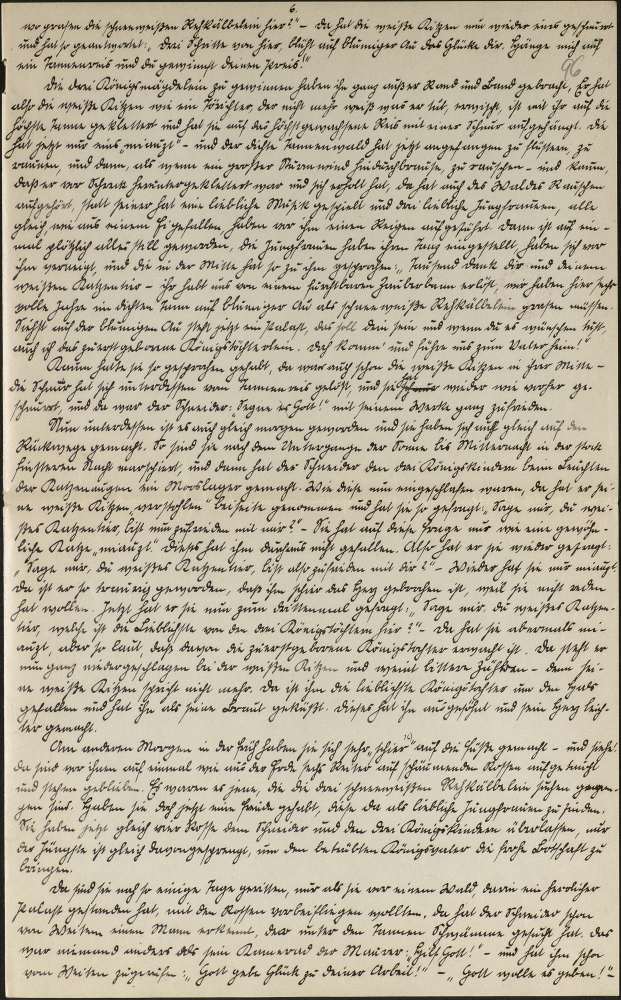 6.
96
wo grasen die schneeweißen Rehkälbelein hier?" – da hat die weiße Kitzen nun wieder eins geschnurrt
und hat so geantwortet: „Drei Schritte von hier, blüht auf blumiger Au das Glücke dir. Hänge mich auf
ein Tannenreis und du gewinnst deinen Preis!"
Die drei Königsmägdelein zu gewinnen haben ihn ganz außer Rand und Band gebracht. Er hat
also die weiße Kitzen wie ein Törichter, der nicht mehr weiß was er tut, erwischt, ist mit ihr auf die
höchste Tanne geklettert und hat sie auf das höchstgewachsene Reis mit einer Schnur aufgehängt. Sie
hat jetzt nur eins „miaugt" – und der dichte Tannenwald hat jetzt angefangen zu flüstern, zu
raunen, und dann, als wenn ein großer Sturmwind hindurchbrause, zu rauschen – und kaum,
daß er vor Schreck heruntergeklettert war und sich erholt hat, da hat auch des Waldes Rauschen
aufgehört, statt seiner hat eine liebliche Musik gespielt und drei liebliche Jungfrauen, alle
gleich wie aus einem Ei gefallen, haben vor ihm einen Reigen aufgeführt. Dann ist auf ein-
mal plötzlich alles still geworden, die Jungfrauen haben ihren Tanz eingestellt, haben sich vor
ihm verneigt, und die in der Mitte hat so zu ihm gesprochen: „Tausend Dank dir und deinem
weißen Katzentier – ihr habt uns von einem furchtbaren Zauberbann erlöst, wir haben hier sechs
volle Jahre im dichten Tann auf blumiger Au als schneeweiße Rehkälbelein grasen müssen.
Siehst auf der blumigen Au steht jetzt ein Palast, das soll dein sein und wenn du es wünschen tust,
auch ich das zuerstgeborene Königstöchterlein. Doch komm' und führe uns zum Vater heim!"
Kaum hatte sie so gesprochen gehabt, da war auch schon die weiße Kitzen in ihrer Mitte –
die Schnur hat sich unterdessen vom Tannenreis gelöst, und sie hat wieder wie vorher ge-
schnurrt, und da war der Schneider: Segne es Gott!" mit seinem Werke ganz zufrieden.
Nun unterdessen ist es auch gleich morgen geworden und sie haben sich auch gleich auf den
Rückwege gemacht. So sind sie nach dem Untergange der Sonne bis Mitternacht in der stock
finsteren Nacht marschiert, und dann hat der Schneider den drei Königskindern beim Leuchten
der Katzenaugen ein Mooslager gemacht. Wie diese nun eingeschlafen waren, da hat er sei-
ne weiße Kitzen „verstohlen" beiseite genommen und hat sie so gefragt: „Sage mir, du wei-
ßes Katzentier, bist nun zufrieden mit mir?" – Sie hat auf diese Frage nur wie eine gewöhn-
liche Katze „miaugt". Dieses hat ihm durchaus nicht gefallen. Also hat er sie wieder gefragt:
„Sage mir, du weißes Katzentier, bist also zufrieden mit dir?" – Wieder hat sie nur miaugt.
Da ist er so traurig geworden, daß ihm schier das Herz gebrochen ist, weil sie nicht reden
hat wollen. Jetzt hat er sie nun zum drittenmal gefragt: „Sage mir, du weißes Katzen-
tier, welche ist die Lieblichste von den drei Königstöchtern hier?" – Da hat sie abermals mi-
augt, aber so laut, daß davon die zuerstgeborene Königstochter erwacht ist. Da steht er
nun ganz niedergeschlagen bei der weißen Kitzen und weint bittere Zähren – denn sei-
ne weiße Kitzen spricht nicht mehr. Da ist ihm die lieblichste Königstochter um den Hals
gefallen und hat ihn als seine Braut geküßt. Dieses hat ihn ausgesöhnt und sein Herz leich-
ter gemacht.
Am anderen Morgen in der Früh haben sie sich sehr „schier" auf die Füße gemacht – und siehe!
da sind vor ihnen auf einmal wie aus der Erde sechs Reiter auf schäumenden Rossen aufgetaucht
und stehen geblieben. Es waren es jene, die die drei schneeweißen Rehkälbelein suchen gegan-
gen sind. Haben sie doch jetzt eine Freude gehabt, diese da als liebliche Jungfrauen zu finden.
Sie haben jetzt gleich vier Rosse dem Schneider und den drei Königskindern überlassen, nur
der Jüngste ist gleich davongesprengt, um den betrübten Königsvater die frohe Botschaft zu
bringen.
Da sind sie nach so einige Tage geritten, nur als sie vor einem Wald, darin ein herrlicher
Palast gestanden hat, mit den Rossen vorbeifliegen wollten, da hat der Schneider schon
von Weitem einen Mann erkennt, der unter den Tannen Schwämme gesucht hat. Das
war niemand anders als sein Kamerad der Maurer: „Hilf Gott!" – und hat ihm schon
vom Weiten zugerufen: „Gott gebe Glück zu deiner Arbeit!" – „Gott wolle es geben!" –